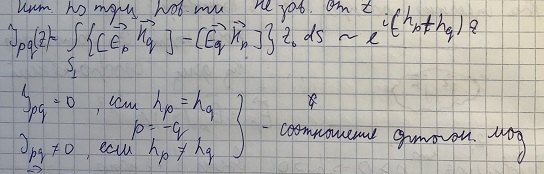 инт. по торц. пов-ти не зав. от z
J_pq(z) = ∫_{S_⊥} {[E⃗_p H⃗_q] - [E⃗_q H⃗_p]} z⃗_0 ds ~ e^{i(h_p+h_q)z}
J_pq = 0, если h_p = h_q
p = -q
J_pq ≠ 0, если h_p ≠ h_q
- соотношение ортогон. мод